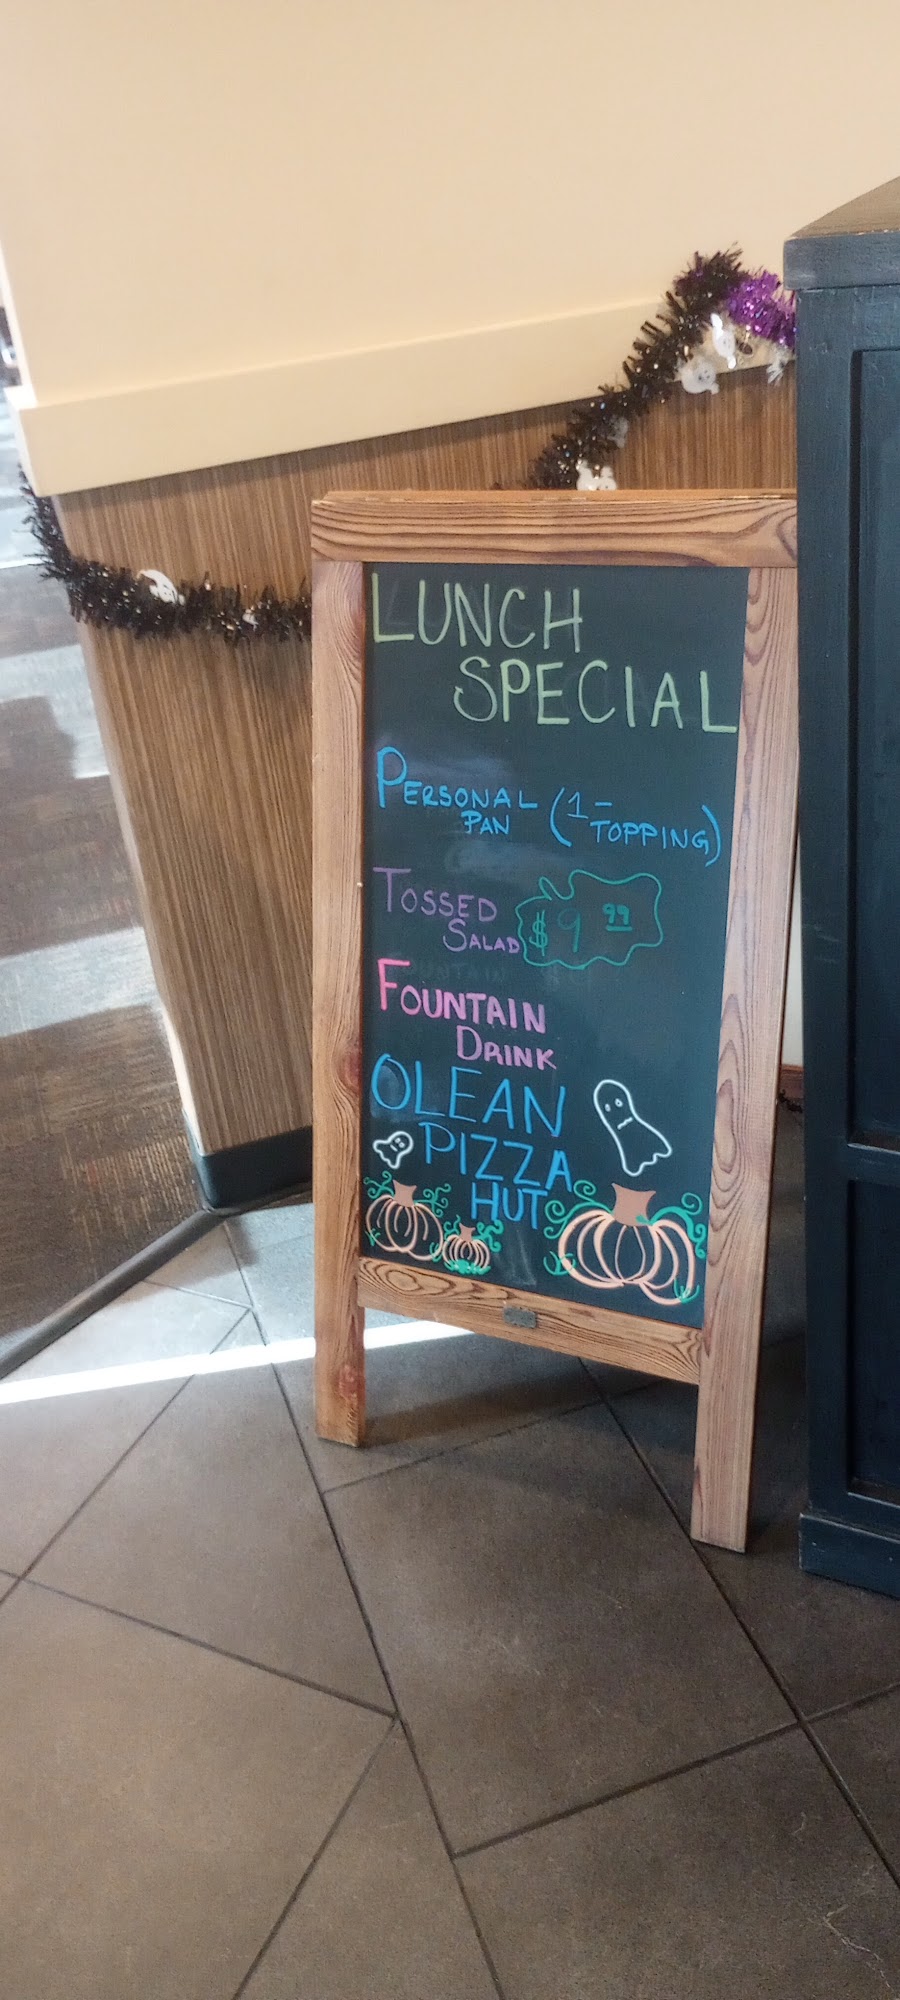 LUNCH
SPECIAL
PERSONAL
PAN (1-
TOPPING)
TOSSED
SALAD $9 99
FOUNTAIN
DRINK
OLEAN
PIZZA
HUT